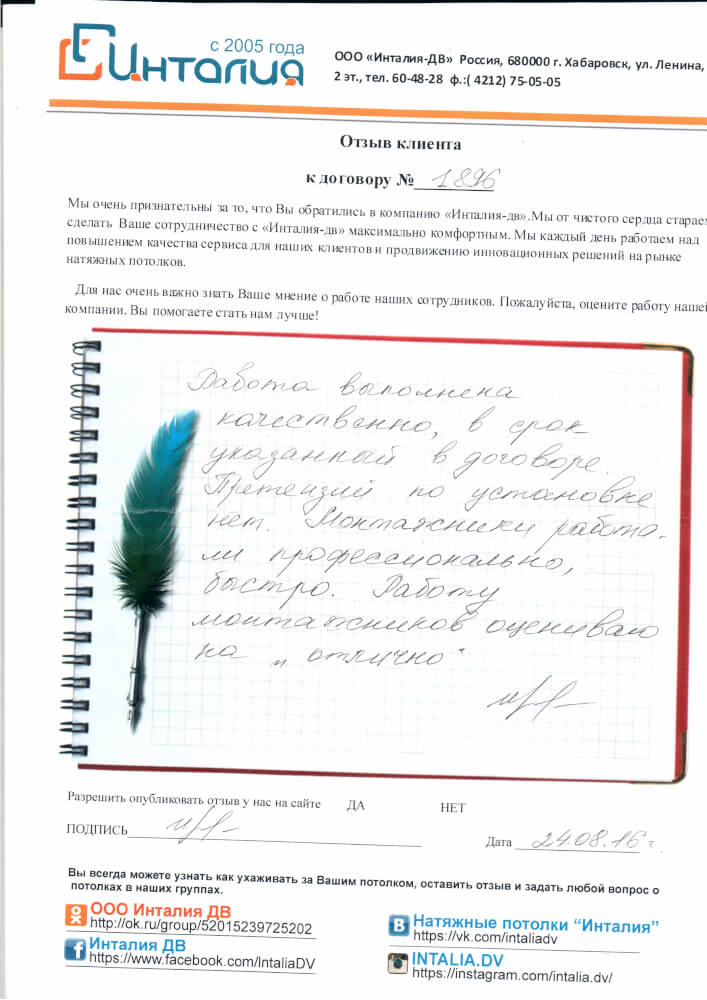 с 2005 года
Инталия
ООО «Инталия-ДВ» Россия, 680000 г. Хабаровск, ул. Ленина,
2 эт., тел. 60-48-28 ф.:( 4212) 75-05-05
Отзыв клиента
к договору № 1896
Мы очень признательны за то, что Вы обратились в компанию «Инталия-дв».Мы от чистого сердца стараем
сделать Ваше сотрудничество с «Инталия-дв» максимально комфортным. Мы каждый день работаем над
повышением качества сервиса для наших клиентов и продвижению инновационных решений на рынке
натяжных потолков.
Для нас очень важно знать Ваше мнение о работе наших сотрудников. Пожалуйста, оцените работу нашей
компании. Вы помогаете стать нам лучше!
Работа выполнена
качественно, в срок
указанный в договоре.
Претензий по установке
нет. Монтажники работа-
ли профессионально,
быстро. Работу
монтажников оцениваю
на „отлично"
Разрешить опубликовать отзыв у нас на сайте ДА НЕТ
ПОДПИСЬ
Дата 24.08.16 г.
Вы всегда можете узнать как ухаживать за Вашим потолком, оставить отзыв и задать любой вопрос о
потолках в наших группах.
ООО Инталия ДВ
http://ok.ru/group/52015239725202
Инталия ДВ
https://www.facebook.com/IntaliaDV
Натяжные потолки “Инталия”
https://vk.com/intaliadv
INTALIA.DV
https://instagram.com/intalia.dv/